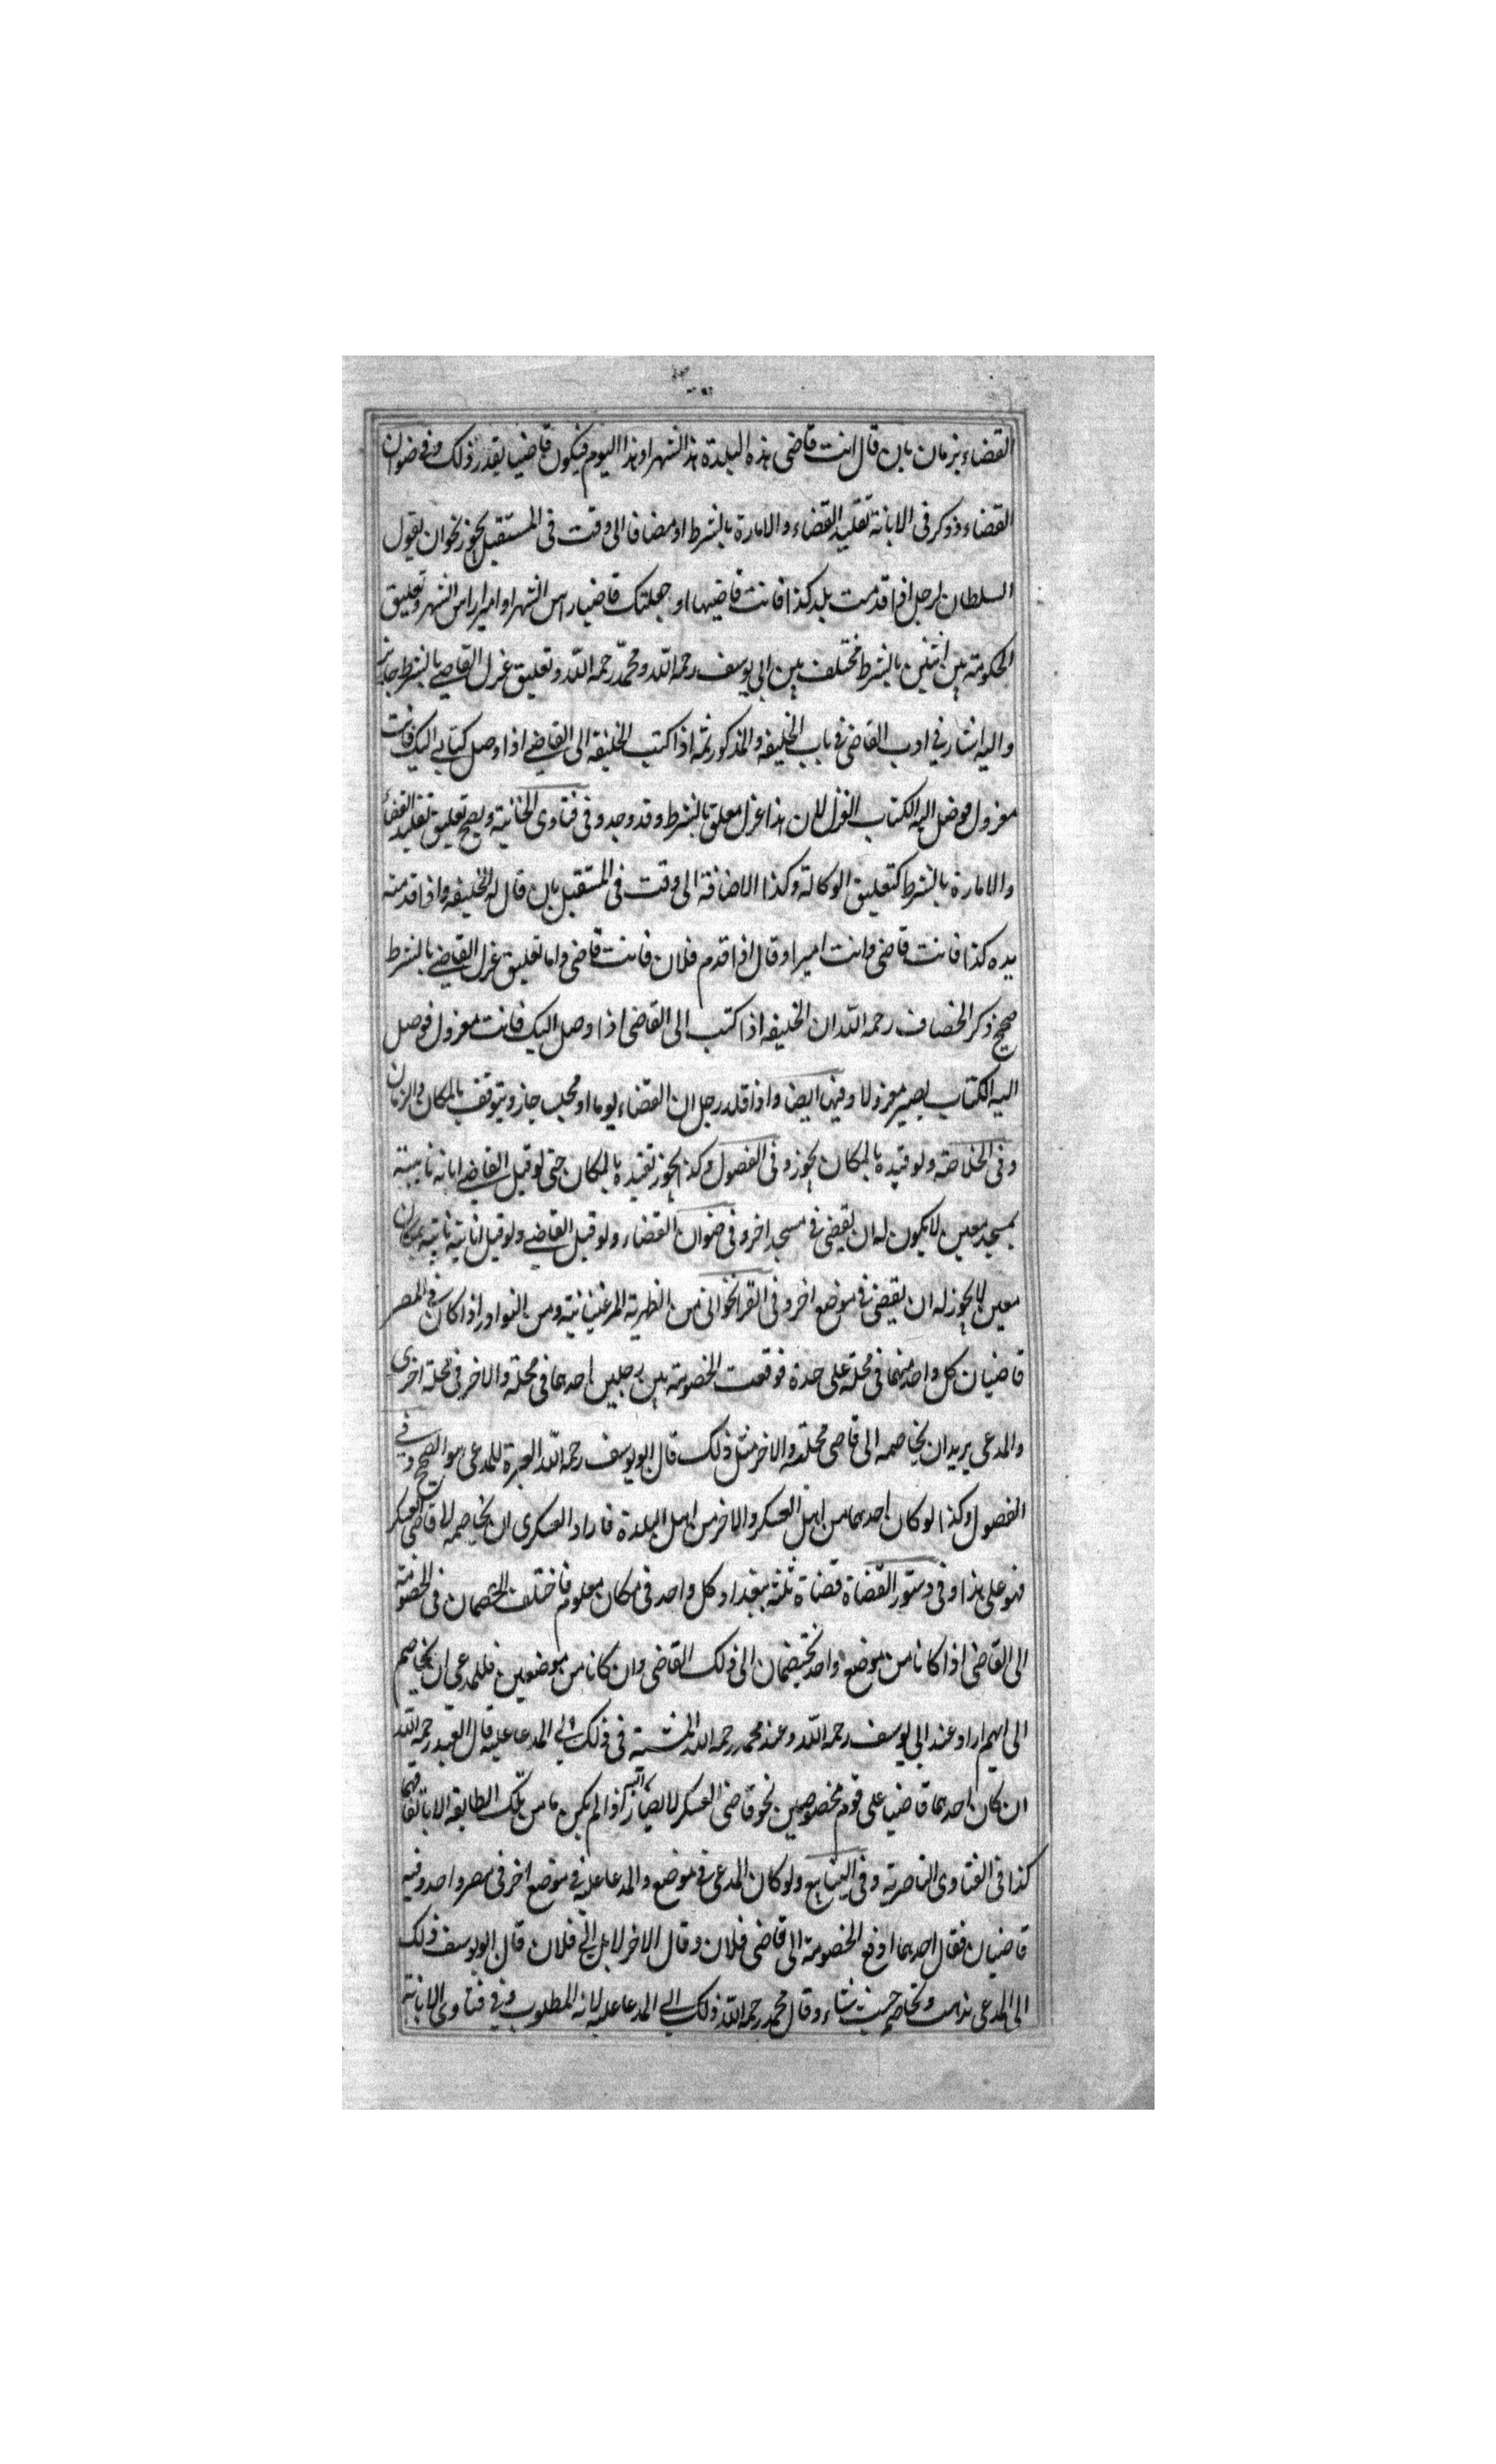 القضاء بزمان بان قال انت قاضى هذه البلدة هذا الشهر او هذا اليوم فيكون قاضيا بقدر ذلك وفى ضوان
القضاء وذكر فى الابانة تقليد القضاء والامارة بالشرط او مضافا الى وقت فى المستقبل يجوز نحو ان يقول
السلطان لرجل اذا قدمت بلد كذا فانت قاضيها او جعلتك قاضيا راس الشهر او اميرا راس الشهر وتعليق
الحكومة بين اثنين بالشرط مختلف بين ابى يوسف رحمه الله ومحمد رحمه الله وتعليق عزل القاضى بالشرط جائز
واليه اشار فى ادب القاضى فى باب الخليفه والمذكور ثمه اذا كتب الخليفة الى القاضى اذا وصل كتابى اليك فانت
معزول فوصل اليه الكتاب انعزل لان هذا عزل معلق بالشرط وقد وجد وفى فتاوى الخانية ويصح تعليق تقليد القضاء
والامارة بالشرط كتعليق الوكالة وكذا الاضافة الى وقت فى المستقبل بان قال له الخليفه واذا قدمته
يده كذا فانت قاضى وانت امير او قال اذا قدم فلان فانت قاضى واما تعليق عزل القاضى بالشرط
صحيح ذكر الخصاف رحمه الله ان الخليفه اذا كتب الى القاضى اذا وصل اليك فانت معزول فوصل
اليه الكتاب يصير معزولا وفيها ايضا واذا قلد رجل ان القضاء يوما او مجلس جاز ويتوقف بالمكان والزمان
وفى الخلاصة ولو قيده بالمكان يجوز وفى الفصول وكذا يجوز تقييده بالمكان حتى لو قيل القاضى ابانة نائبيته
بمسجد معين لا يكون له ان يقضى فى مسجد اخر وفى ضوان القضاء ولو قيل القاضى ولو قيل انابته نائبته بمكان
معين لا يجوز له ان يقضى فى موضع اخر وفى القراخوانى من الظهرية المرغينانية ومن النوادر اذا كان فى المصر
قاضيان كل واحد منهما فى محلة على حدة فوقعت الخصومة بين رجلين احدهما فى محلة والاخر فى محلة اخرى
والمدعى يريد ان يخاصمه الى قاضى محلته والاخر مثل ذلك قال ابو يوسف رحمه الله العبرة للمدعى هو الصحيح وفى
الفصول وكذا لو كان احدهما من اهل العسكر والاخر من اهل البلدة فاراد العسكرى ان يخاصمه لا قاضى العسكر
فهو على هذا وفى دستور القضاة قضاة ثلثه ببغداد كل واحد فى مكان معلوم فاختلف الخصمان فى الخصومة
الى القاضى اذا كانا من موضع واحد يختصمان الى ذلك القاضى وان كانا من موضعين فللمدعى ان يخاصم
الى ايهم اراد عند ابى يوسف رحمه الله وعند محمد رحمه الله المشية فى ذلك الى المدعا عليه قال العبد رحمه الله
ان كان احدهما قاضيا على قوم مخصوصين نحو قاضى العسكر لا يصار اليه اذا لم يكن ما من تلك الطايفة الا باتفاقهما
كذا فى الفتاوى الناصرية وفى الينابيع ولو كان المدعى فى موضع والمدعا عليه فى موضع اخر فى مصر واحد وفيه
قاضيان فقال احدهما ادفع الخصومة الى قاضى فلان وقال الاخر لا بل الى فلان قال ابو يوسف ذلك
الى المدعى يذهب ويخاصم حيث شاء وقال محمد رحمه الله ذلك الى المدعا عليه لانه المطلوب وفى فتاوى الابانة